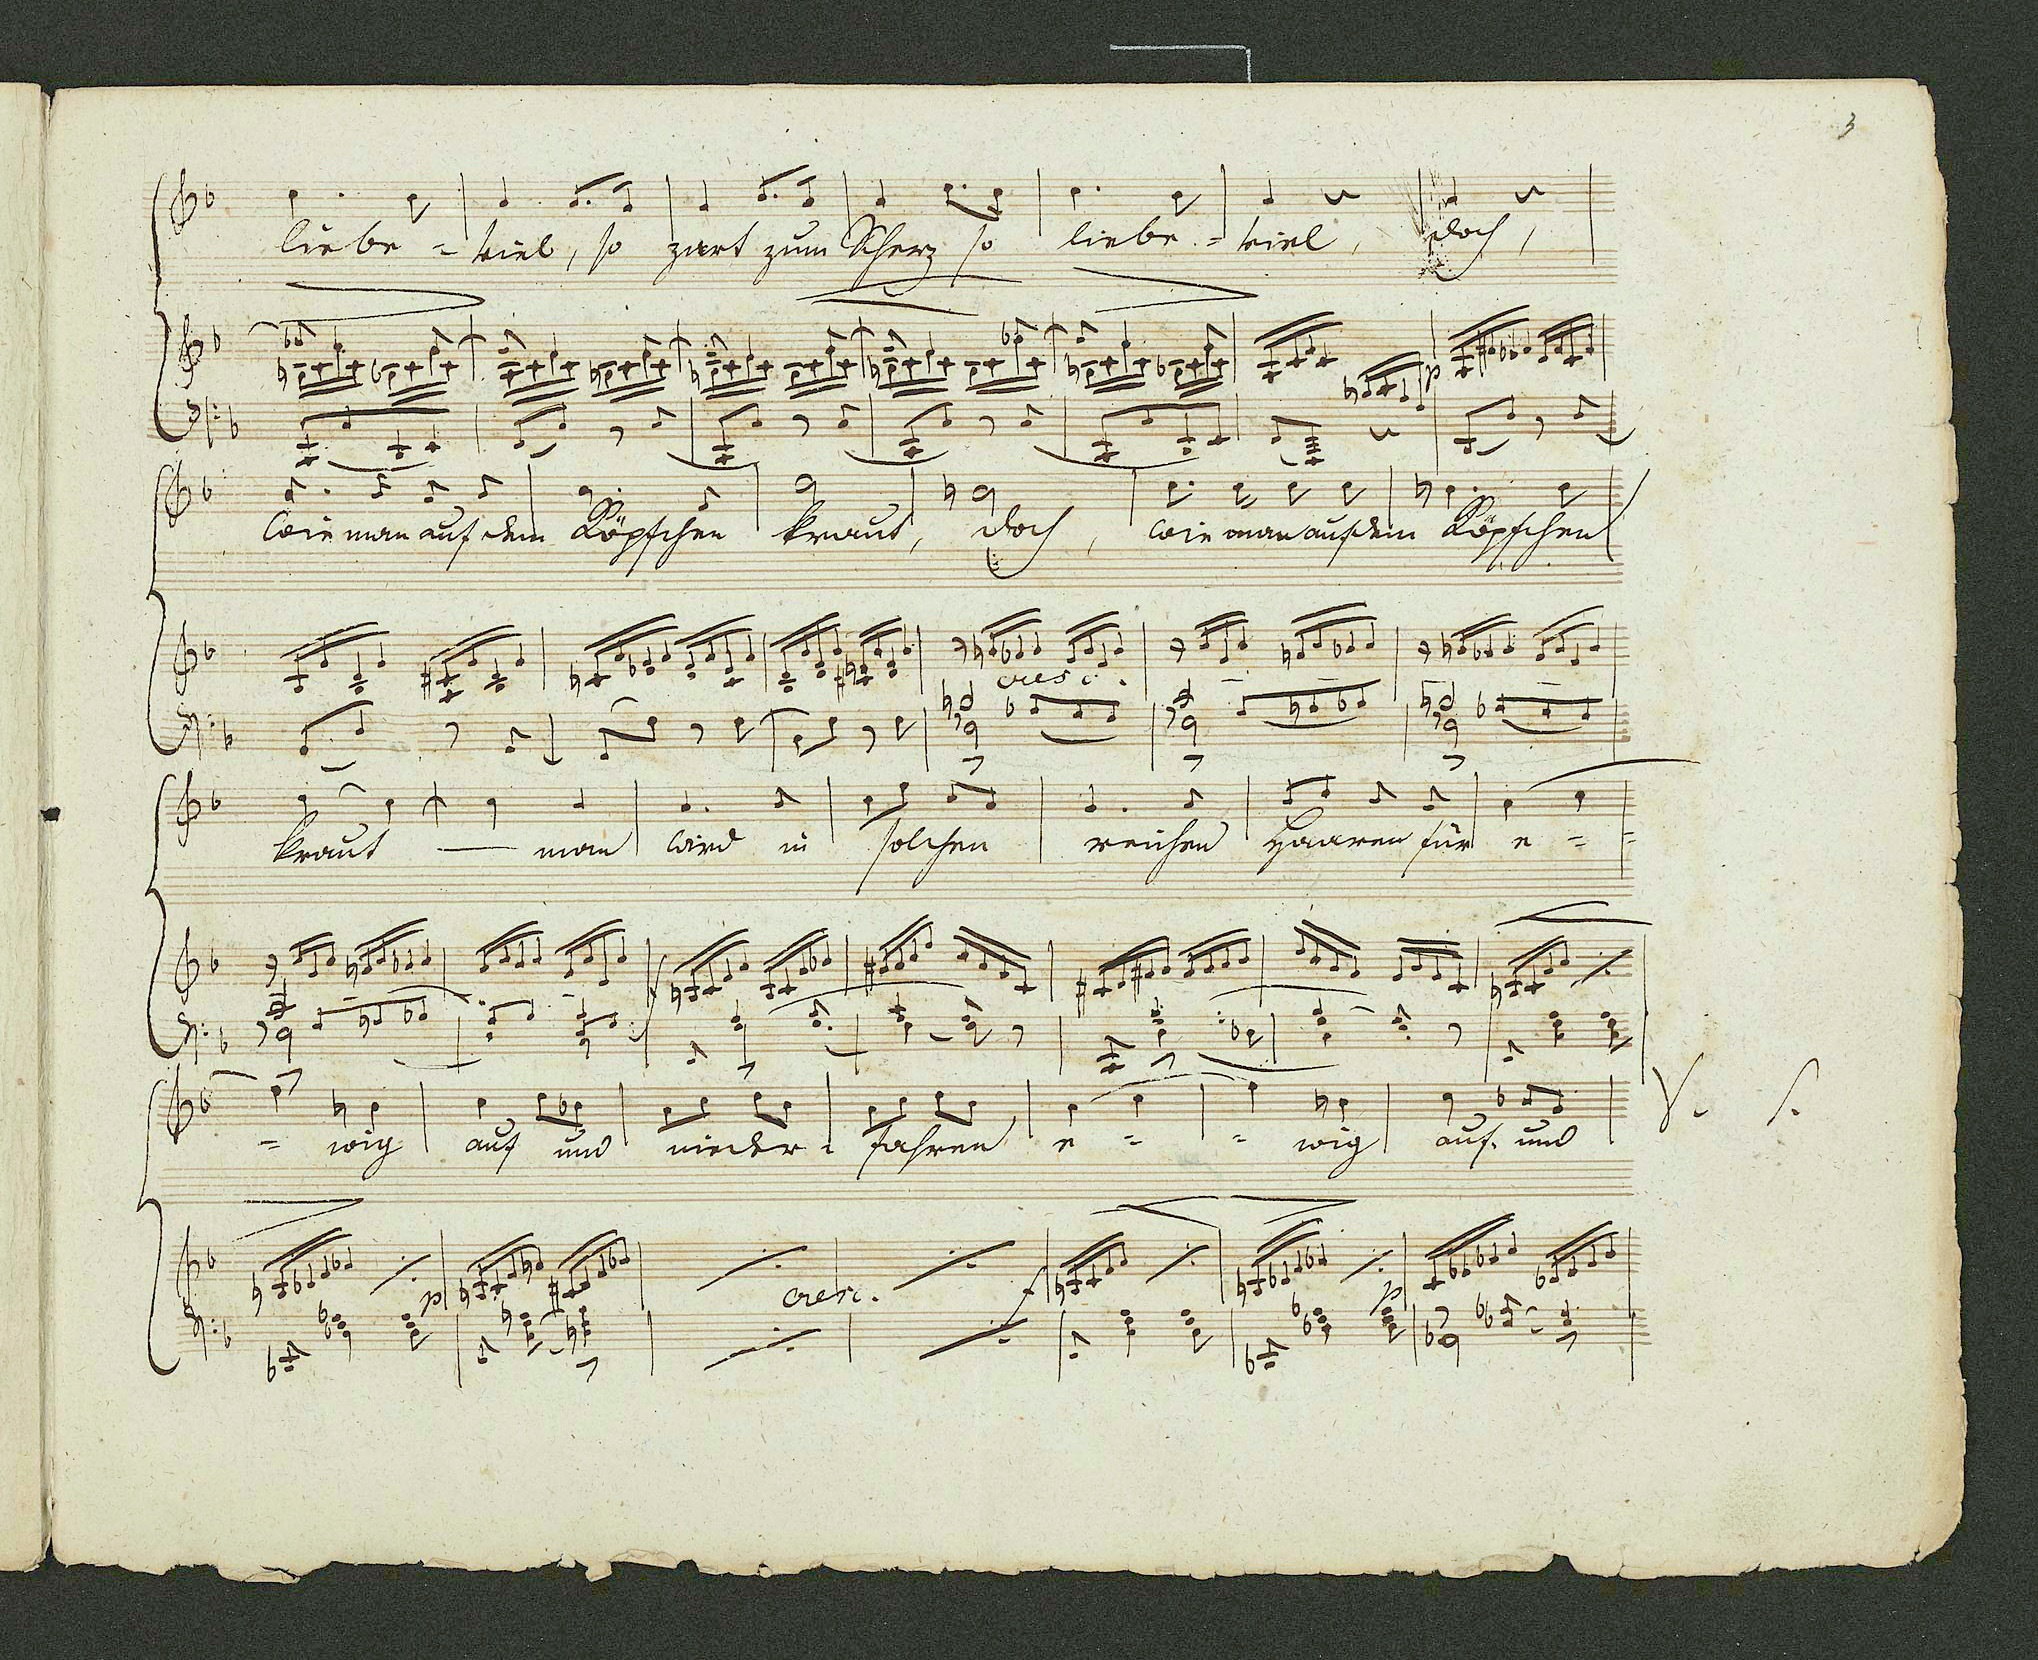 3
liebe - viel, so zart zum Scherz so liebe - viel, doch,
p
wie man auf dem Köpfchen kraut, doch, wie man auf dem Köpfchen
cresc.
kraut — man wird in solchen reichen Haaren für e - -
f
- wig auf und nieder - fahren e - - wig auf und
V. S.
p cresc. f p